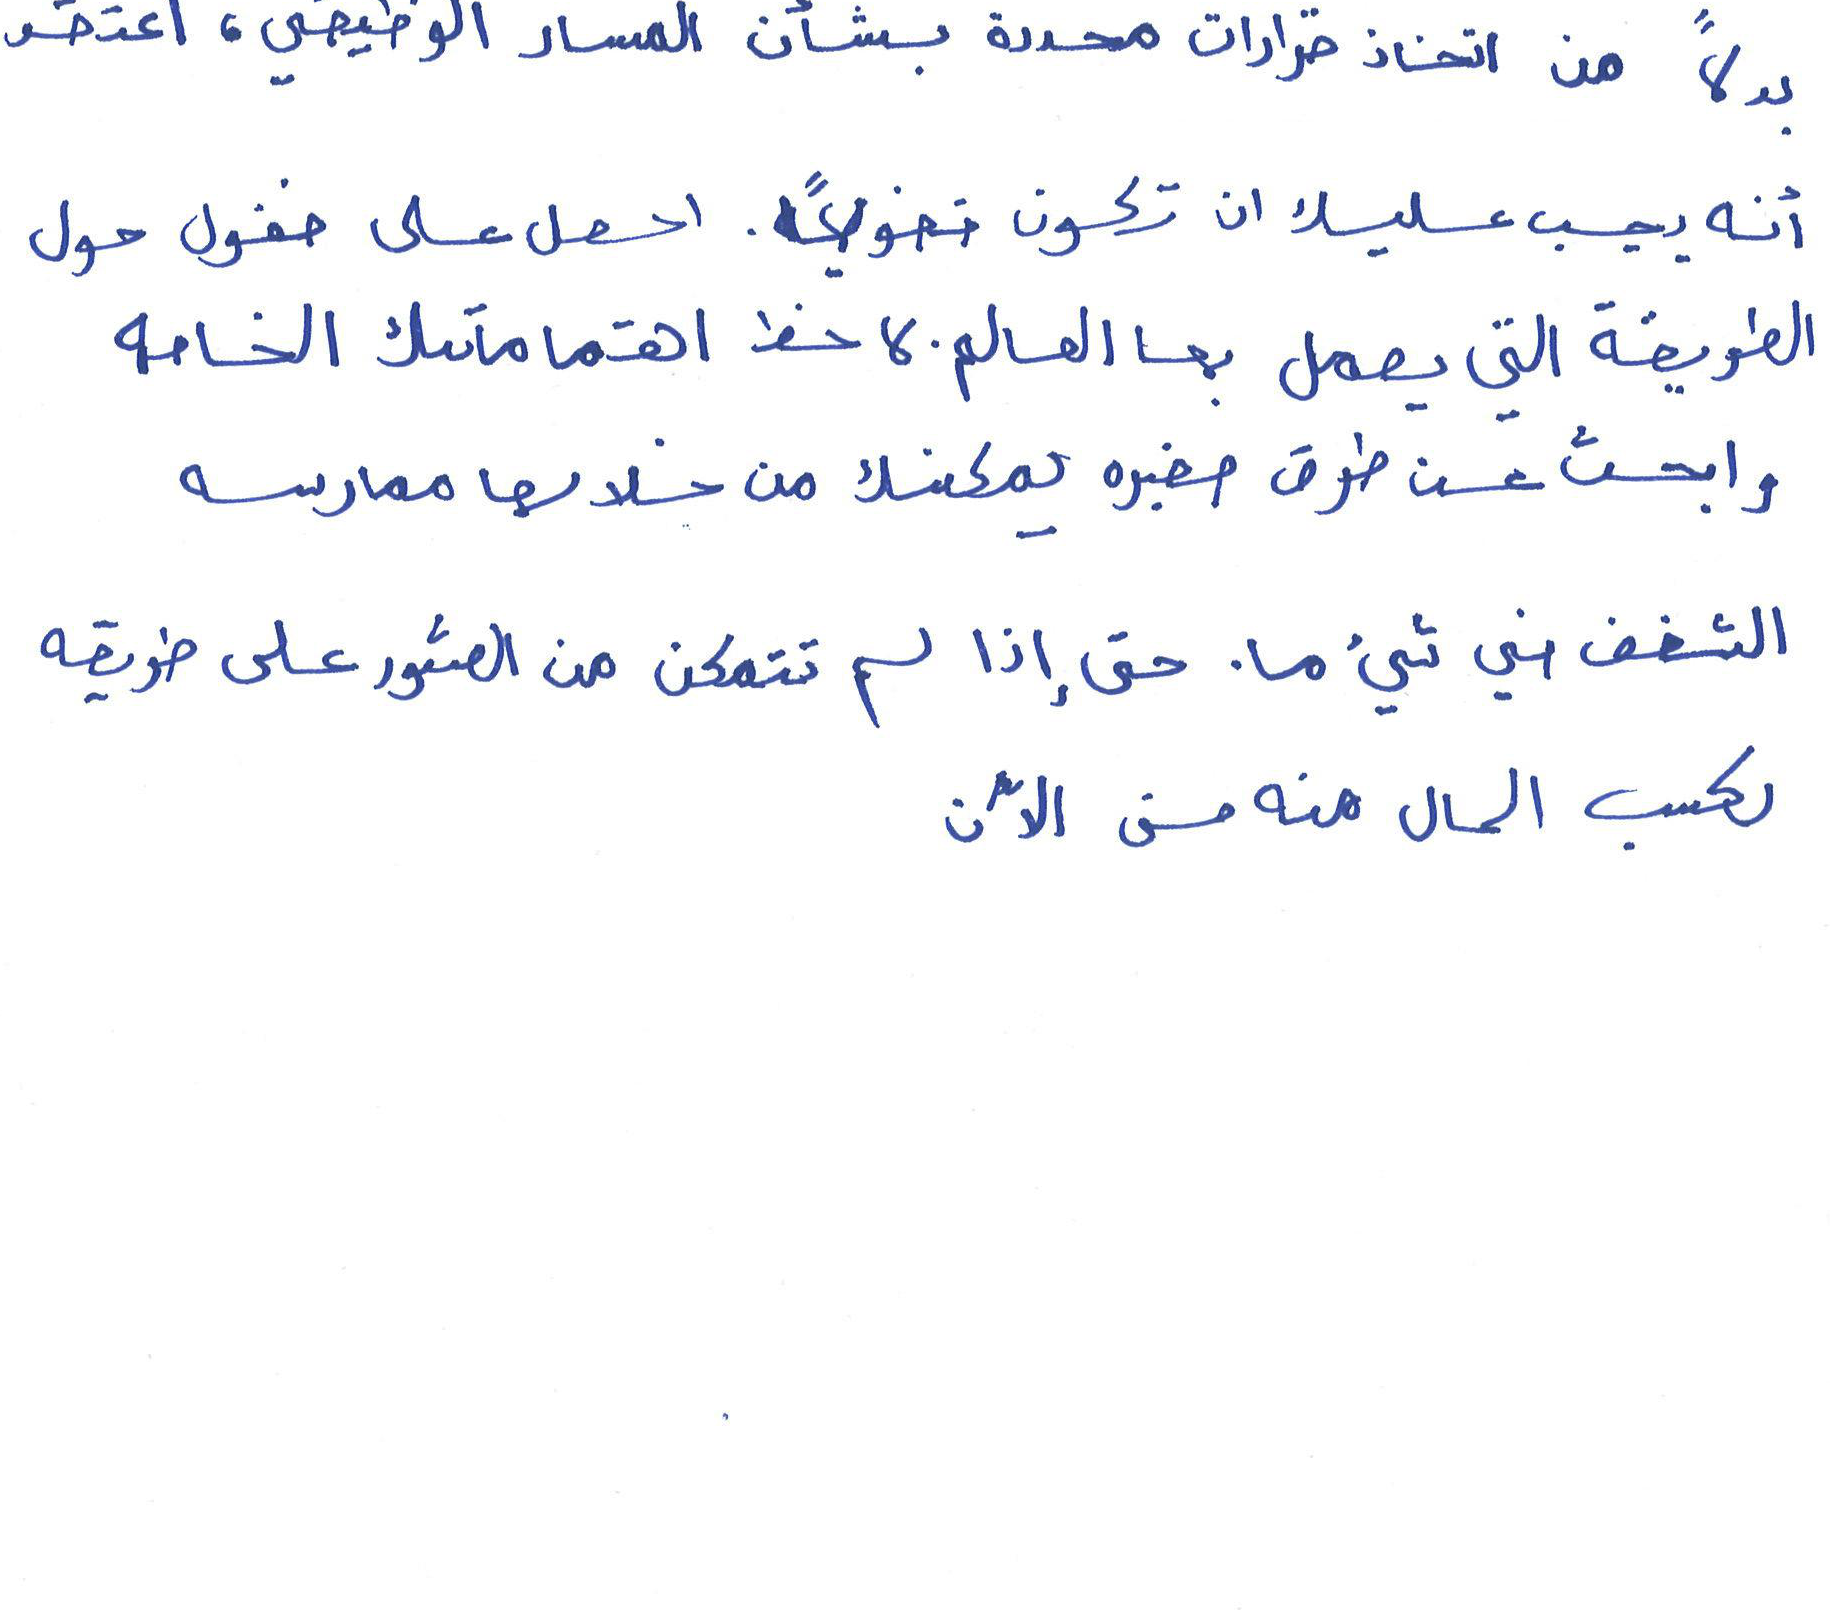 بدلاً من اتخاذ قرارات محددة بشأن المسار الوظيفي، أعتقد
أنه يجب عليك ان تكون فضولياً. احصل على فضول حول
الطريقة التي يعمل بها العالم. لاحظ اهتماماتك الخاصه
وابحث عن طرق صغيره يمكنك من خلالها ممارسه
الشغف في شيء ما. حتى إذا لم تتمكن من العثور على طريقه
لكسب المال منه حتى الآن